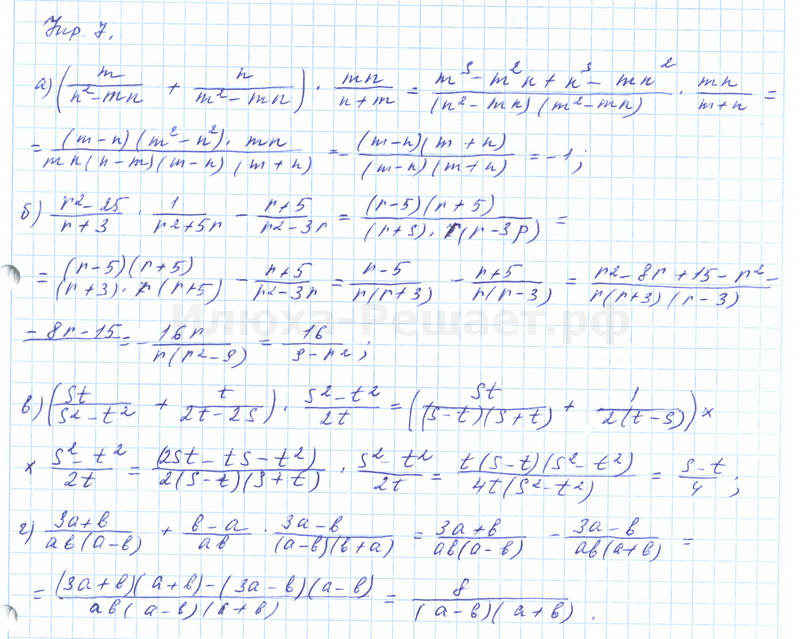 Упр. 7.
а) (m/(n²-mn) + n/(m²-mn)) · mn/(n+m) = (m³-m²n+n³-mn²)/((n²-mn)(m²-mn)) · mn/(m+n) =
= ((m-n)(m²-n²)·mn)/(mn(n-m)(m-n)(m+n)) = -((m-n)(m+n))/((m-n)(m+n)) = -1;
б) (r²-25)/(r+3) · 1/(r²+5r) - (r+5)/(r²-3r) = ((r-5)(r+5))/((r+3)·r(r-3p)) =
= ((r-5)(r+5))/((r+3)·r(r+5)) - (r+5)/(r²-3r) = (r-5)/(r(r+3)) - (r+5)/(r(r-3)) = (r²-8r+15-r²-)/(r(r+3)(r-3))
Илюха-Решает.рф
-8r-15 = -16r/(r(r²-9)) = 16/(9-r²);
в) (st/(s²-t²) + t/(2t-2s)) · (s²-t²)/2t = (st/((s-t)(s+t)) + 1/(2(t-s))) ×
× (s²-t²)/2t = (2st-ts-t²)/(2(s-t)(s+t)) · (s²-t²)/2t = (t(s-t)(s²-t²))/(4t(s²-t²)) = (s-t)/4;
г) (3a+b)/(ab(a-b)) + (b-a)/ab · (3a-b)/((a-b)(b+a)) = (3a+b)/(ab(a-b)) - (3a-b)/(ab(a+b)) =
= ((3a+b)(a+b)-(3a-b)(a-b))/(ab(a-b)(a+b)) = 8/((a-b)(a+b)).